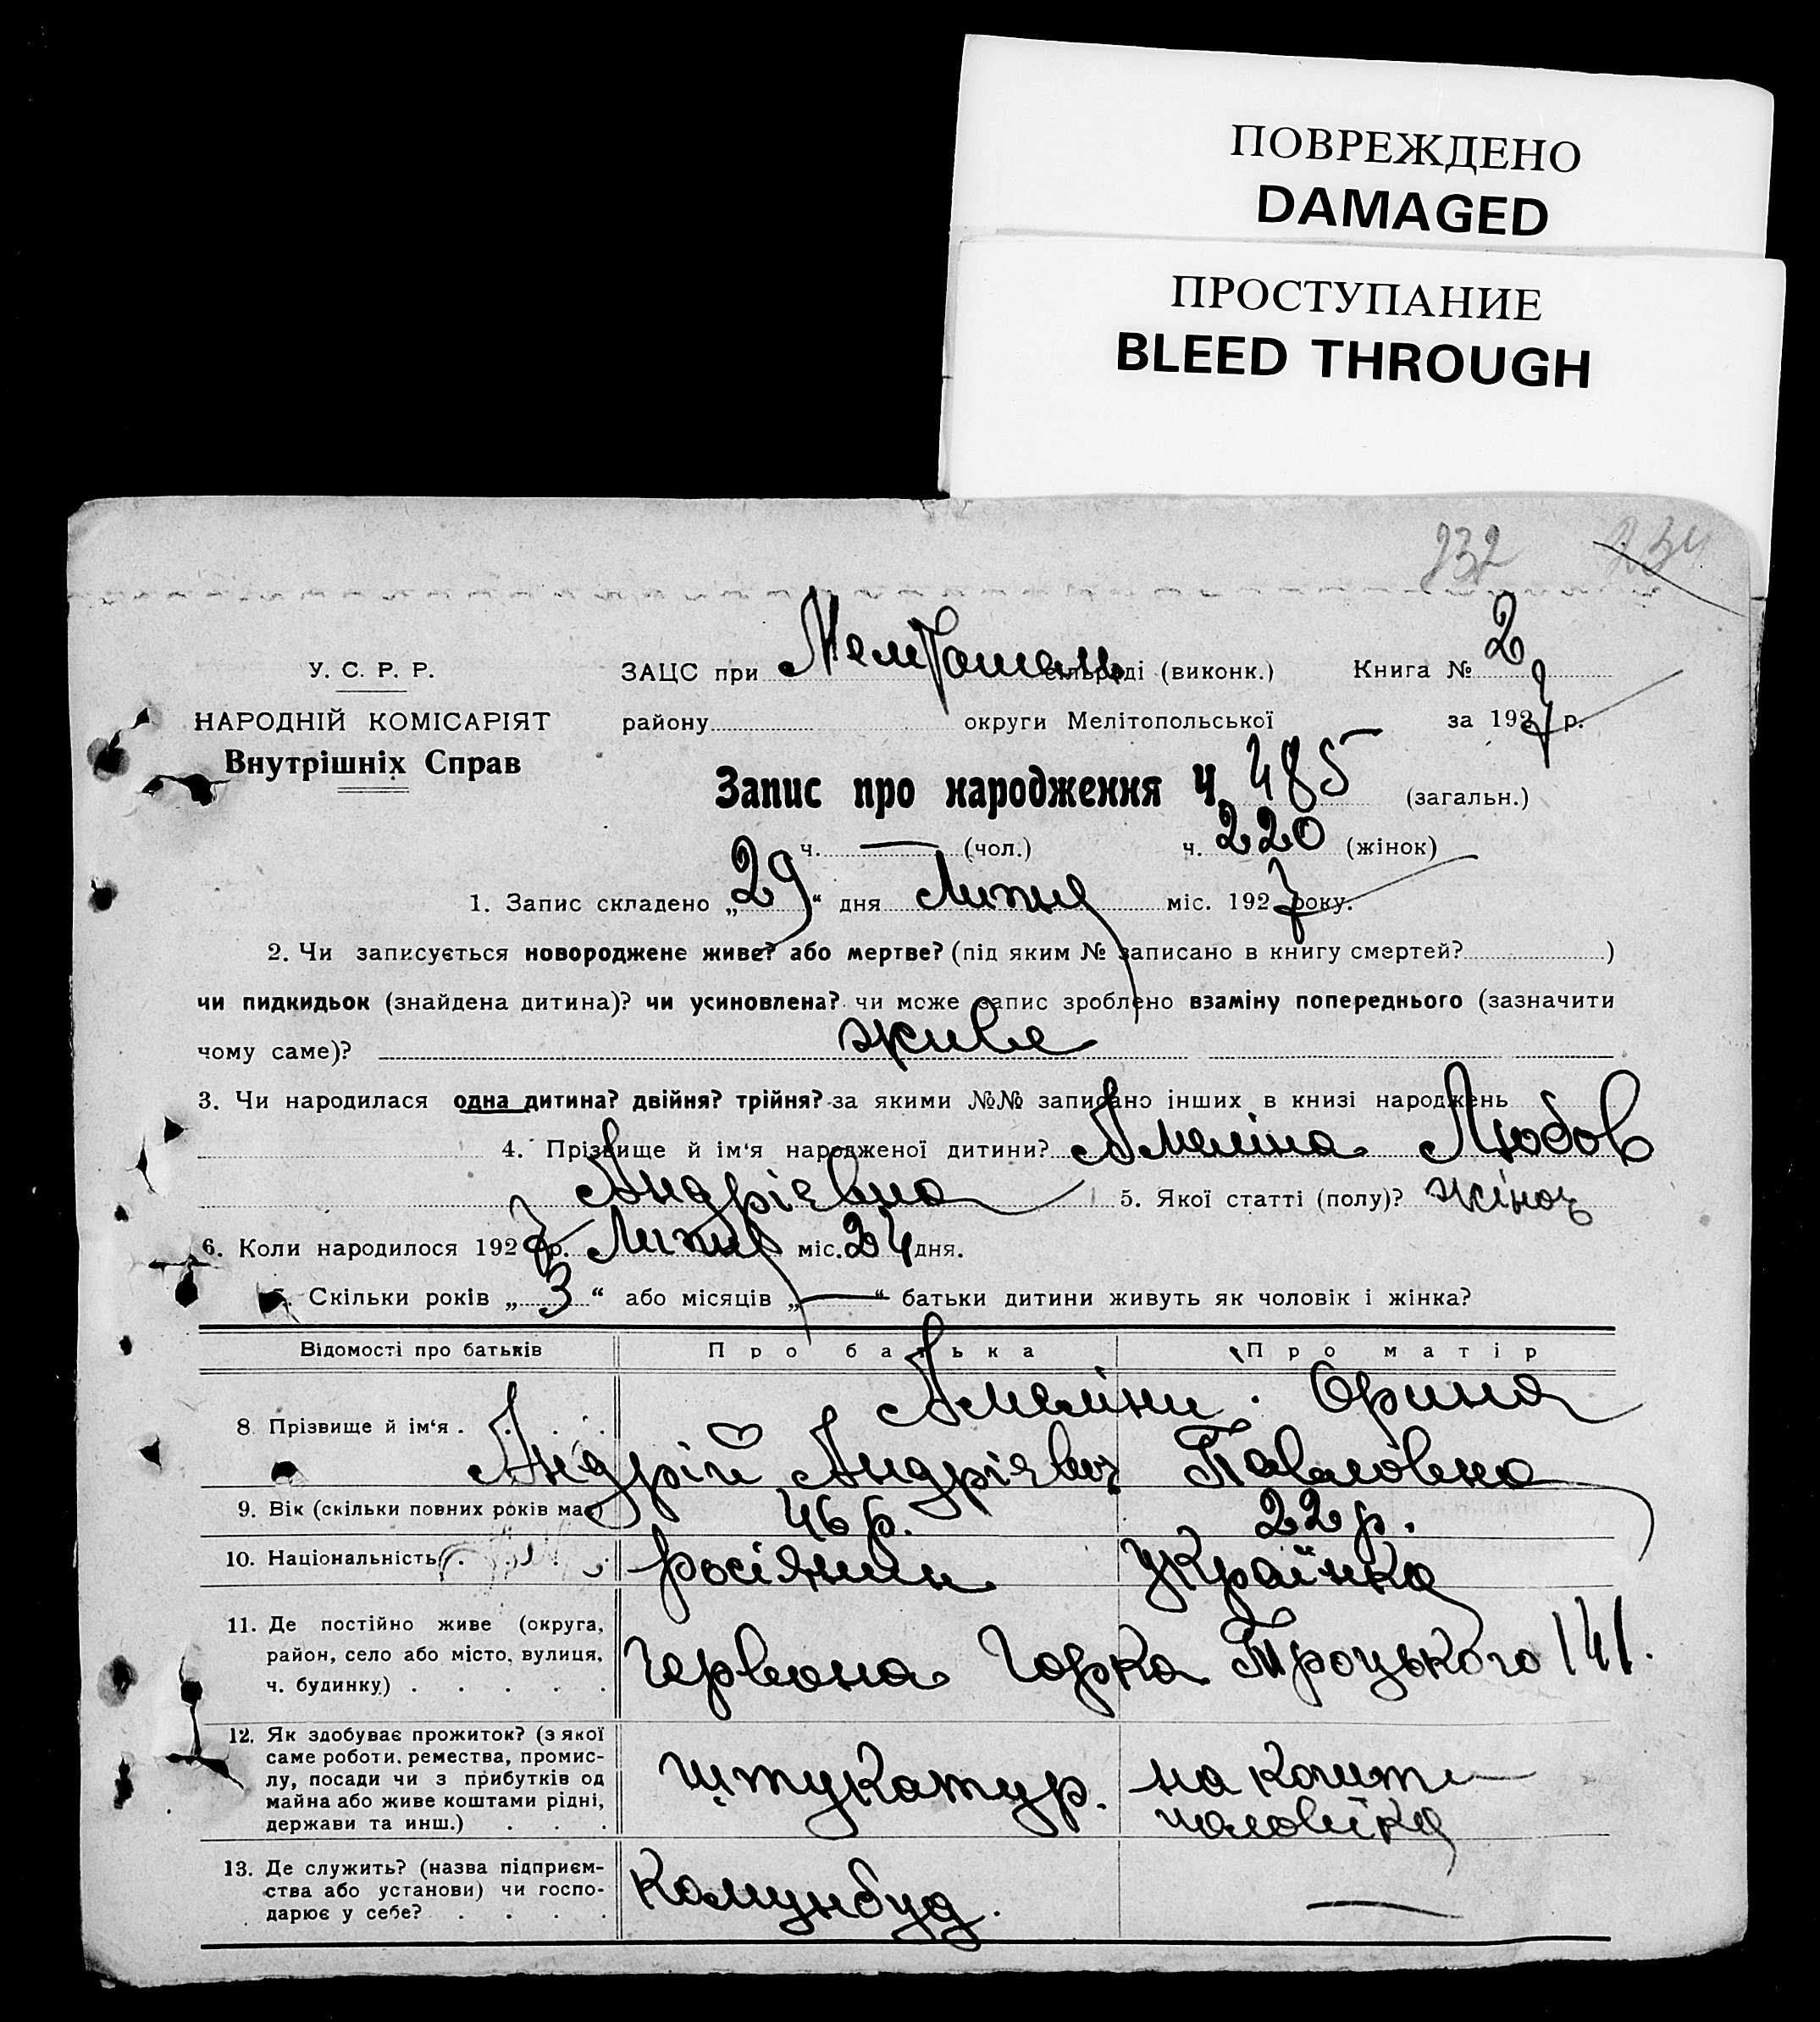 ПОВРЕЖДЕНО
DAMAGED
ПРОСТУПАНИЕ
BLEED THROUGH
232 234
У. С. Р. Р.
ЗАЦС при сільраді (виконк.) Книга № 2
НАРОДНІЙ КОМІСАРІЯТ
району округи Мелітопольської за 1927 р.
Внутрішніх Справ
Запис про народження ч. 485 (загальн.)
ч. — (чол.) ч. 220 (жінок)
1. Запис складено „29“ дня Липня міс. 1927 року.
2. Чи записується новороджене живе? або мертве? (під яким № записано в книгу смертей? )
чи пидкидьок (знайдена дитина)? чи усиновлена? чи може запис зроблено взаміну попереднього (зазначити
чому саме)? живе
3. Чи народилася одна дитина? двійня? трійня? за якими №№ записано інших в книзі народжень
4. Прізвище й ім‘я народженої дитини? Амеліна Любов
Андрієвна 5. Якої статті (полу)? жіноч
6. Коли народилося 1927 р. Липня міс. 24 дня.
7. Скільки років „3“ або місяців „—“ батьки дитини живуть як чоловік і жінка?
Відомості про батьків Про батька Про матір
8. Прізвище й ім‘я . . . . Амеліни. Орина
Андрій Андрієвич Павловна
9. Вік (скільки повних років має) 46 р. 22 р.
10. Національність . . . . росіянин українка
11. Де постійно живе (округа, район, село або місто, вулиця, ч. будинку) . . . . . Червона Горка Троцького 141.
12. Як здобуває прожиток? (з якої саме роботи, ремества, промис-
лу, посади чи з прибутків од майна або живе коштами рідні, держави та инш.) . . . штукатур. на кошти
чоловіка
13. Де служить? (назва підприєм-
ства або установи) чи госпо-
дарює у себе? . . . . Комунбуд. —